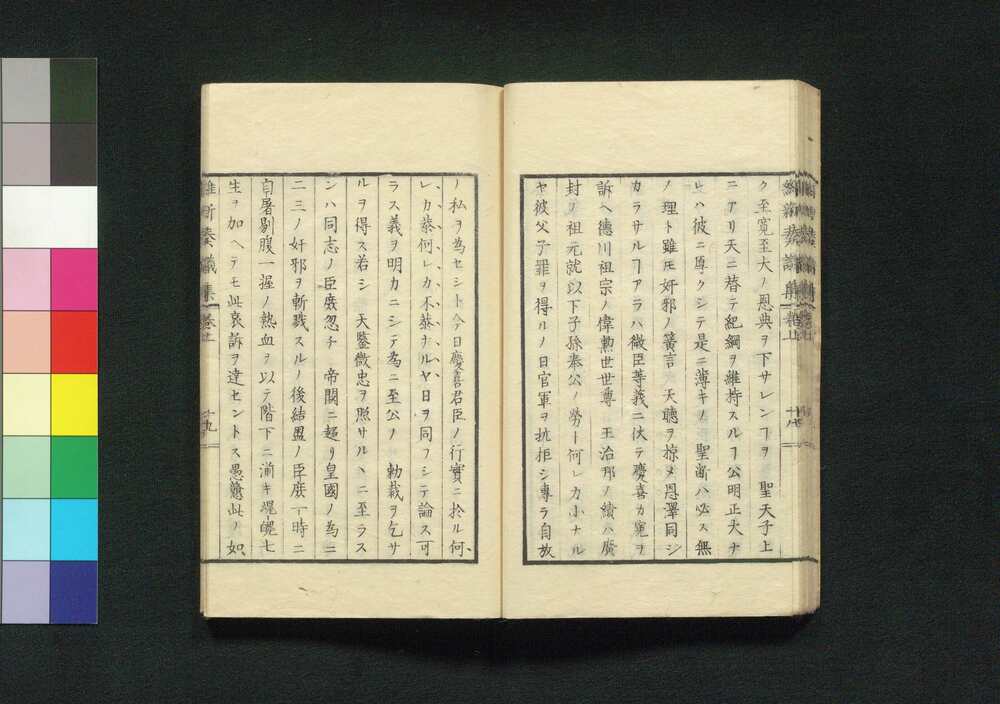 ク至寛至大ノ恩典ヲ下サレンヿヲ　聖天子上
ニアリ天ニ替テ紀綱ヲ維持スルヿ公明正大ナ
ルハ彼ニ厚クシテ是ニ薄キノ　聖断ハ必ス無
ノ理ト雖𪜈奸邪ノ簧言　天聴ヲ掠メ恩澤同シ
カラサルヿアラハ微臣等義ニ伏テ慶喜カ寃ヲ
訴ヘ徳川祖宗ノ偉勲世世尊　王治邦ノ績ハ廣
封ヲ祖元就以下子孫奉公ノ勞ト何レカ小ナル
ヤ彼父子罪ヲ得ルノ日官軍ヲ抗拒シ專ラ自放
ノ私ヲ為セシト今日慶喜君臣ノ行實ニ於ル何
レカ恭何レカ不恭ナルヤ日ヲ同フシテ論ス可
ラス義ヲ明カニシテ為ニ至公ノ　勅裁ヲ乞サ
ルヲ得ス若シ　天鑒微忠ヲ照サルヽニ至ラス
ンハ同志ノ臣庶忽チ　帝閽ニ趨リ皇國ノ為ニ
二三ノ奸邪ヲ斬戮スルノ後結盟ノ臣庶一時ニ
自屠剔腹一握ノ熱血ヲ以テ階下ニ湔キ魂魄七
生ヲ加ヘテモ此哀訴ヲ達セントス愚衷此ノ如
維新奏議集　巻廿　十九